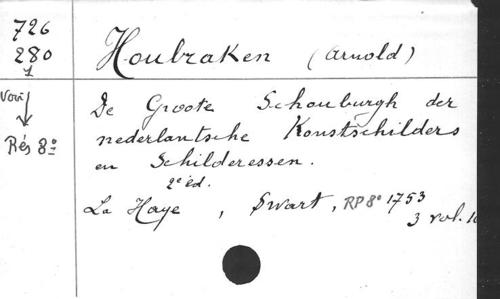 726
280
1
Houbraken (Arnold)
Voir
Rés 8º
De Groote Schouburgh der
nederlantsche Konstschilders
en Schilderessen.
2e éd.
La Haye, Swart, RP 8º 1753
3 vol.